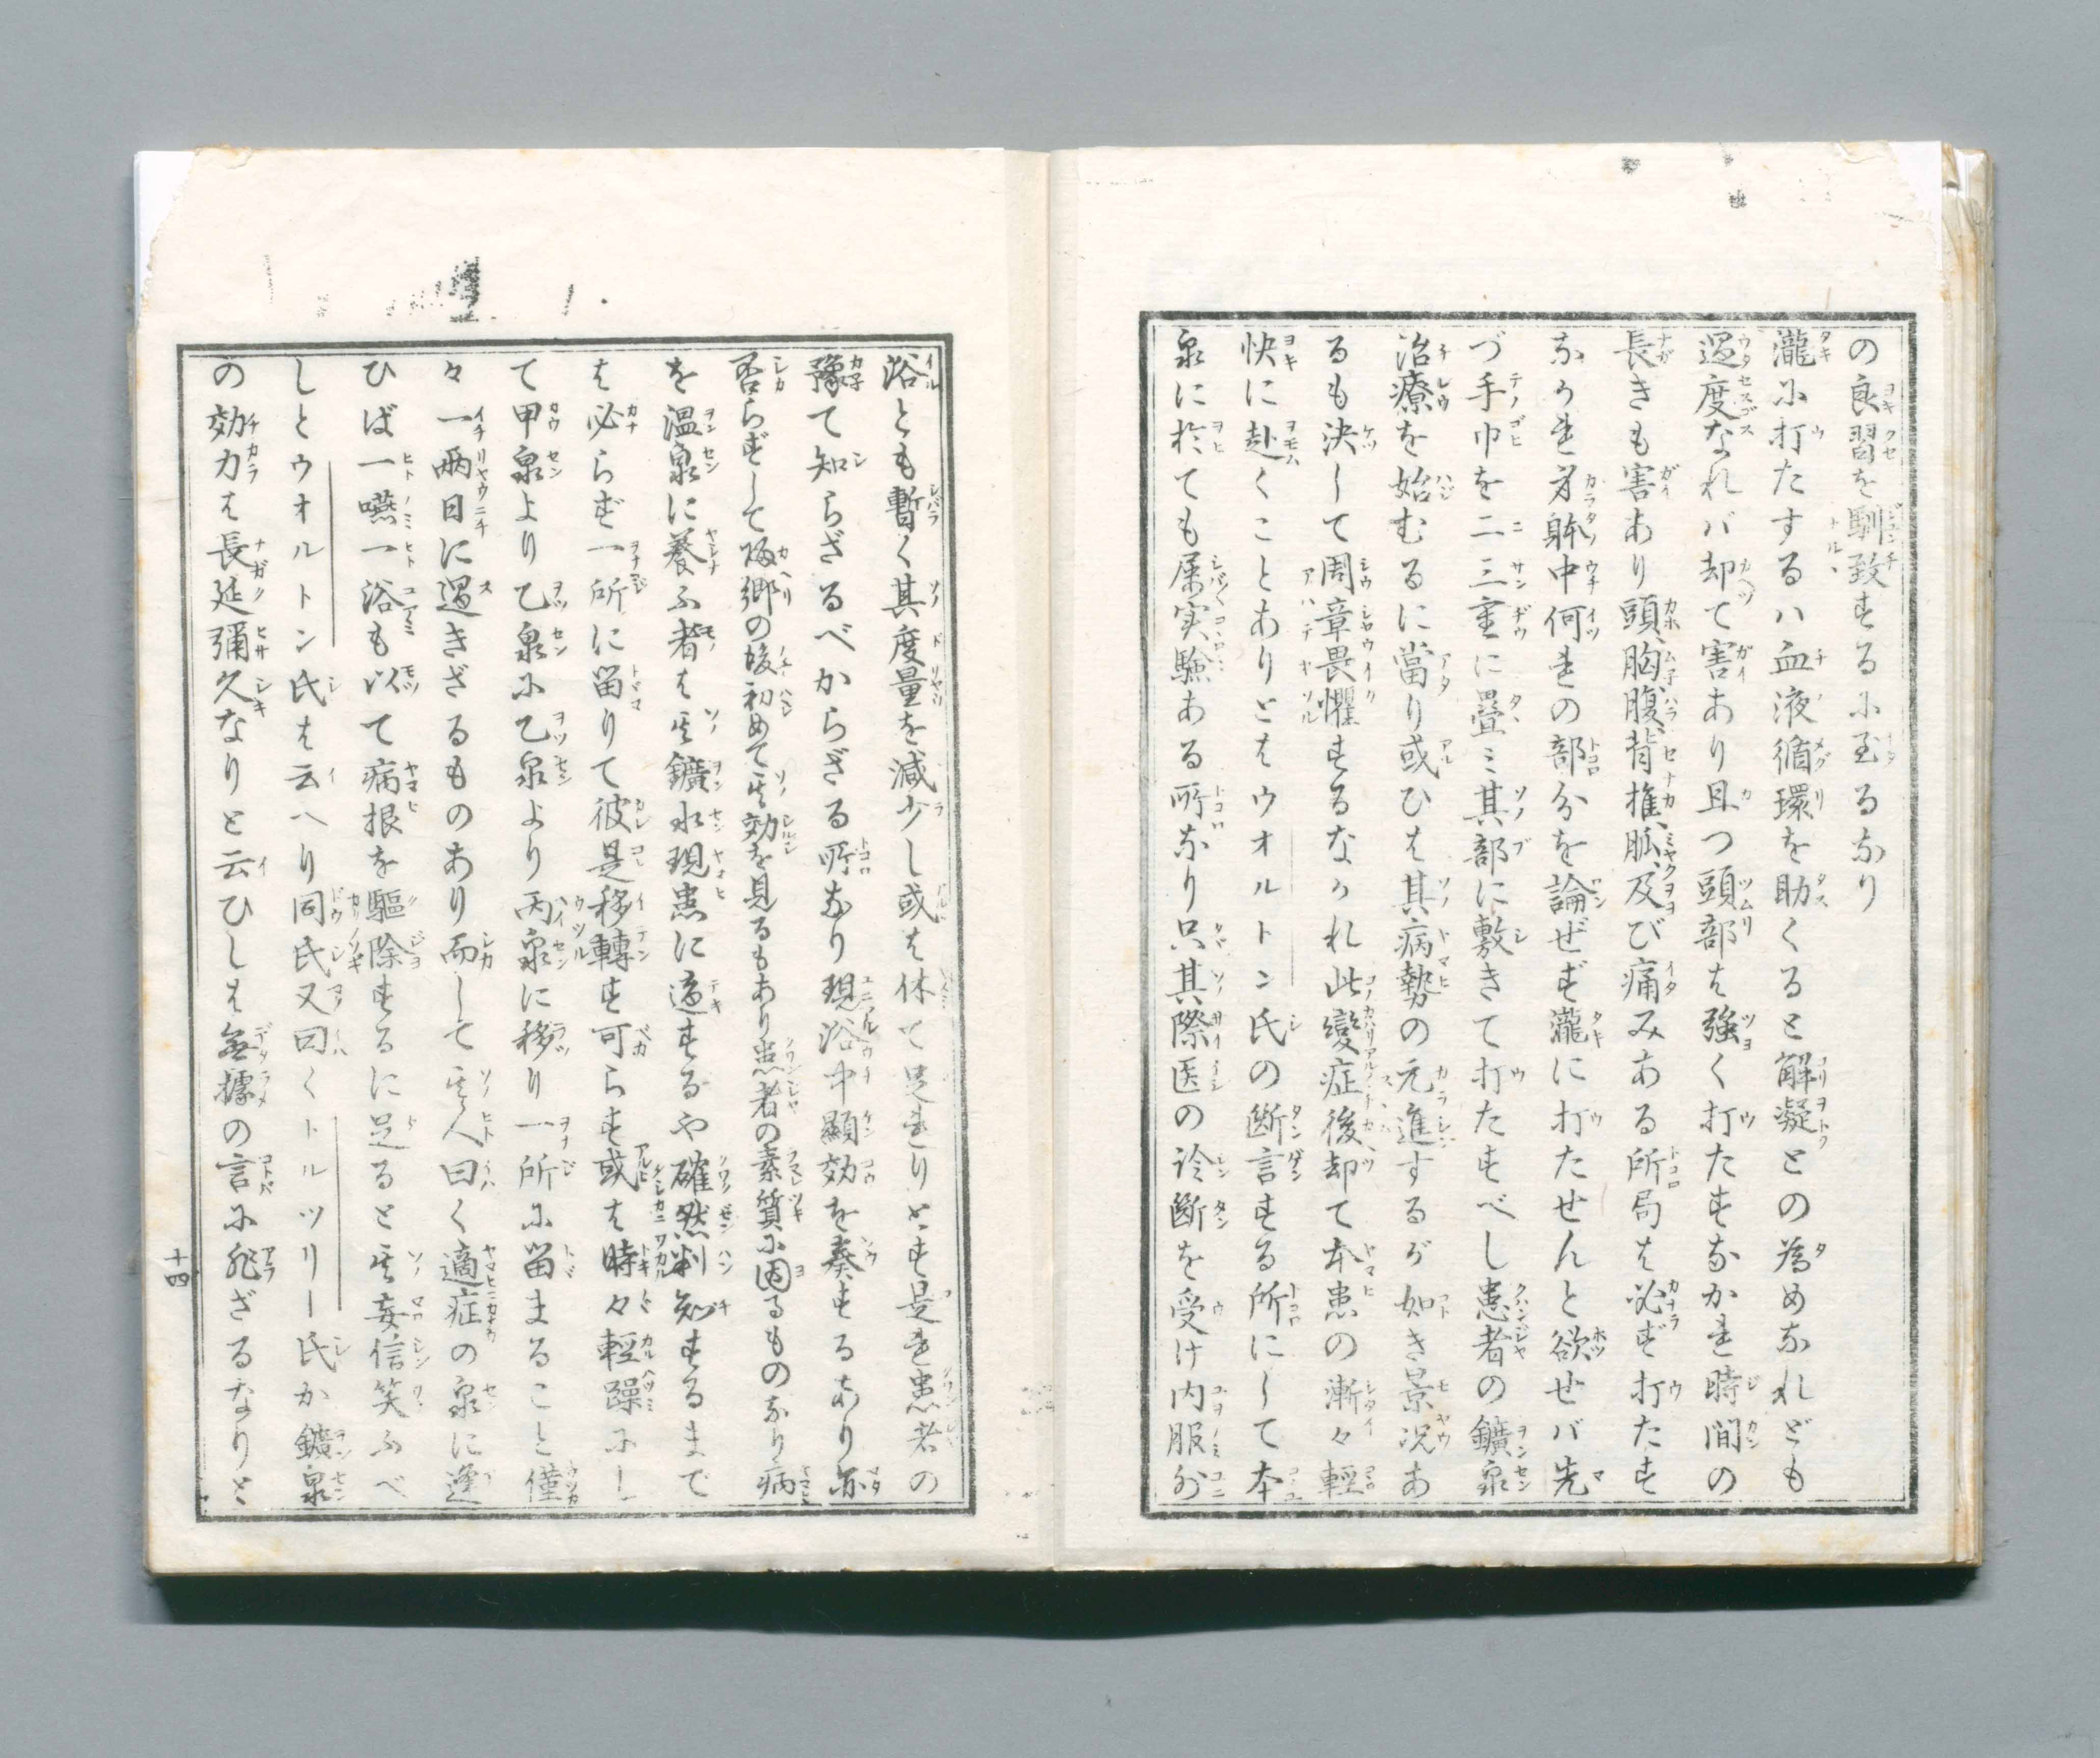 の良習を馴致するに至るなり
瀧に打たするハ血液循環を助くると解凝との為めなれども
過度なれバ却て害あり且つ頭部は強く打たすなかれ時間の
長きも害あり頭、胸、腹、背椎、胍、及び痛みある所局は必ず打たす
なかれ身躰中何れの部分を論ぜず瀧に打たせんと欲せバ先
づ手巾を二三重に畳ミ其部に敷きて打たすべし患者の鑛泉
治療を始むるに當り或ひは其病勢の元進するが如き景况あ
るも決して周章畏懼するなかれ此變症後却て本患の漸々輕
快に赴くことありとはウオルトン氏の断言する所にして本
泉に於ても屡実驗ある所なり只其際医の診断を受け内服外
浴とも暫く其度量を減少し或は休て足れりとす是れ患者の
豫て知らざるべからざる所なり現浴中顯効を奏するあり亦
否らずして帰郷の後初めて其効を見るもあり患者の素質に因るものなり病
を温泉に養ふ者は其鑛水現患に適するや確然判知するまで
は必らず一所に留りて彼是移轉す可らず或は時々輕躁にし
て甲泉より乙泉に乙泉より丙泉に移り一所に留まること僅
々一兩日に過きざるものあり而して其人曰く適症の泉に逢
ひば一嚥一浴も以て病根を驅除するに足ると其妄信笑ふべ
しとウオルトン氏は云へり同氏又曰くトルツリー氏か鑛泉
の効力は長延彌久なりと云ひしは無據の言に非ざるなりと
十四